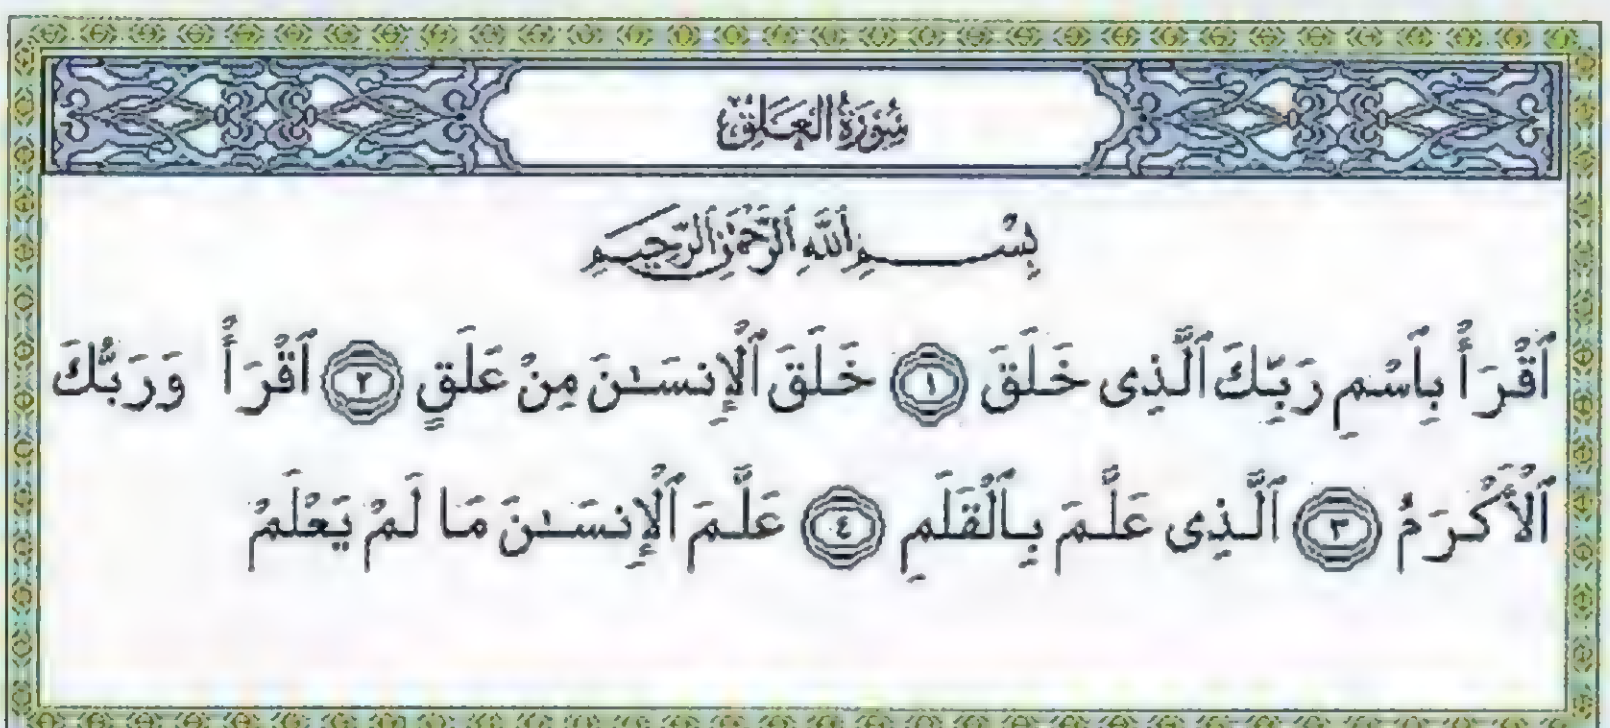 سُورَةُ العَلَقِ
بِسْمِ ٱللَّهِ ٱلرَّحْمَٰنِ ٱلرَّحِيمِ
ٱقْرَأْ بِٱسْمِ رَبِّكَ ٱلَّذِى خَلَقَ ١ خَلَقَ ٱلْإِنسَـٰنَ مِنْ عَلَقٍ ٢ ٱقْرَأْ وَرَبُّكَ
ٱلْأَكْرَمُ ٣ ٱلَّذِى عَلَّمَ بِٱلْقَلَمِ ٤ عَلَّمَ ٱلْإِنسَـٰنَ مَا لَمْ يَعْلَمْ